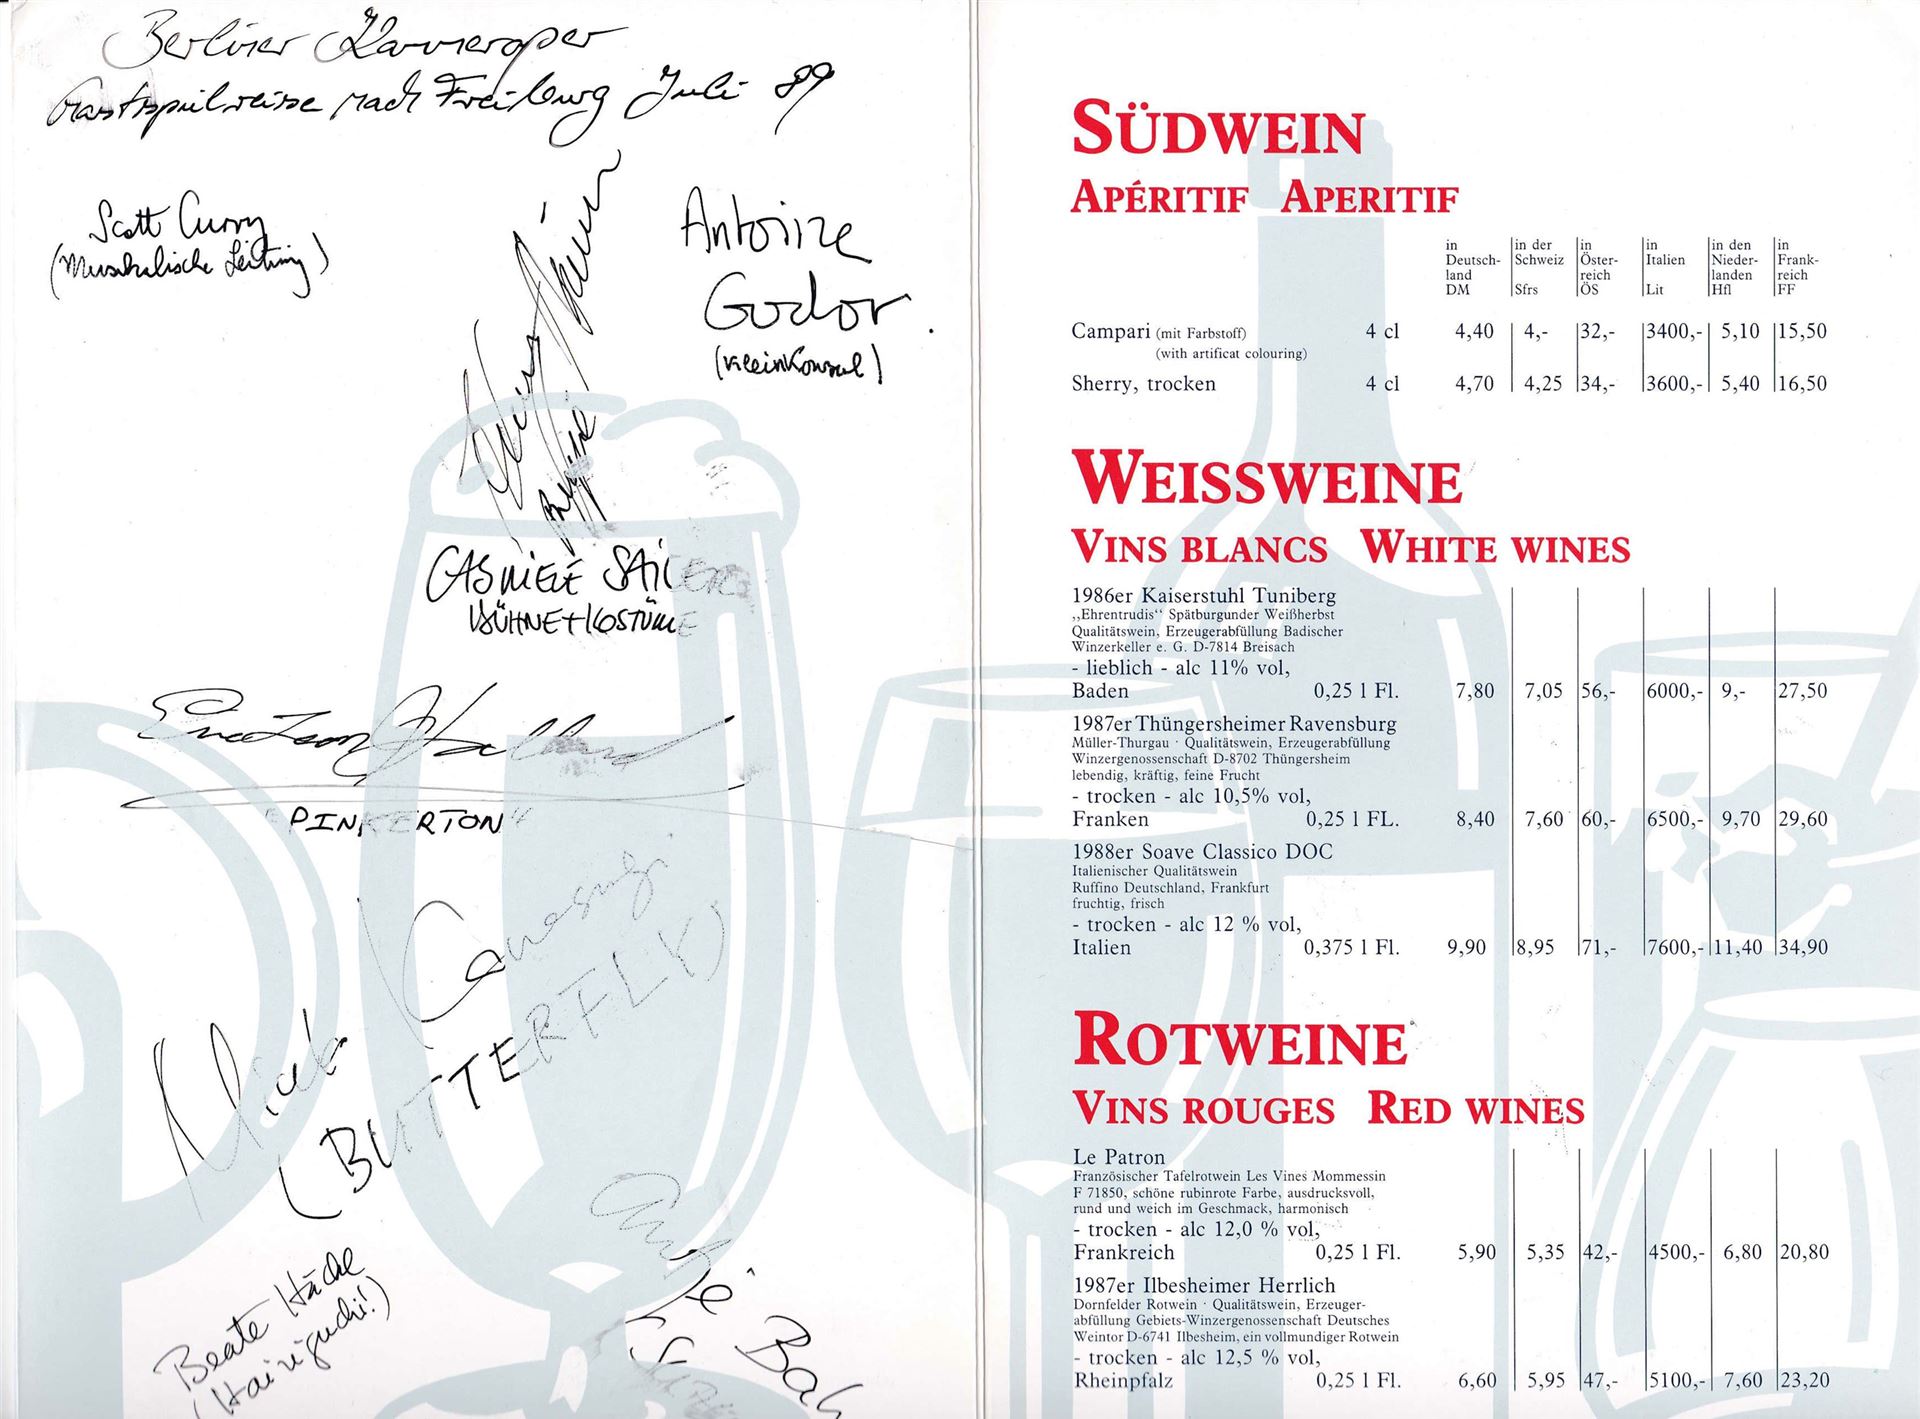 Berliner Kammeroper
Gastspielreise nach Freiburg Juli 89
Scott Curry
(Musikalische Leitung)
Antoine
Godor
(Kleinkonsul)
BÜHNE + KOSTÜME
"PINKERTON"
(BUTTERFLY)
Beate
Antje
SÜDWEIN
APÉRITIF APERITIF
in Deutschland DM
in der Schweiz Sfrs
in Österreich ÖS
in Italien Lit
in den Niederlanden Hfl
in Frankreich FF
Campari (mit Farbstoff) 4 cl 4,40 4,- 32,- 3400,- 5,10 15,50
(with artificat colouring)
Sherry, trocken 4 cl 4,70 4,25 34,- 3600,- 5,40 16,50
WEISSWEINE
VINS BLANCS WHITE WINES
1986er Kaiserstuhl Tuniberg
„Ehrentrudis“ Spätburgunder Weißherbst
Qualitätswein, Erzeugerabfüllung Badischer
Winzerkeller e. G. D-7814 Breisach
- lieblich - alc 11% vol,
Baden 0,25 l Fl. 7,80 7,05 56,- 6000,- 9,- 27,50
1987er Thüngersheimer Ravensburg
Müller-Thurgau · Qualitätswein, Erzeugerabfüllung
Winzergenossenschaft D-8702 Thüngersheim
lebendig, kräftig, feine Frucht
- trocken - alc 10,5% vol,
Franken 0,25 l FL. 8,40 7,60 60,- 6500,- 9,70 29,60
1988er Soave Classico DOC
Italienischer Qualitätswein
Ruffino Deutschland, Frankfurt
fruchtig, frisch
- trocken - alc 12 % vol,
Italien 0,375 l Fl. 9,90 8,95 71,- 7600,- 11,40 34,90
ROTWEINE
VINS ROUGES RED WINES
Le Patron
Französischer Tafelrotwein Les Vines Mommessin
F 71850, schöne rubinrote Farbe, ausdrucksvoll,
rund und weich im Geschmack, harmonisch
- trocken - alc 12,0 % vol,
Frankreich 0,25 l Fl. 5,90 5,35 42,- 4500,- 6,80 20,80
1987er Ilbesheimer Herrlich
Dornfelder Rotwein · Qualitätswein, Erzeuger-
abfüllung Gebiets-Winzergenossenschaft Deutsches
Weintor D-6741 Ilbesheim, ein vollmundiger Rotwein
- trocken - alc 12,5 % vol,
Rheinpfalz 0,25 l Fl. 6,60 5,95 47,- 5100,- 7,60 23,20